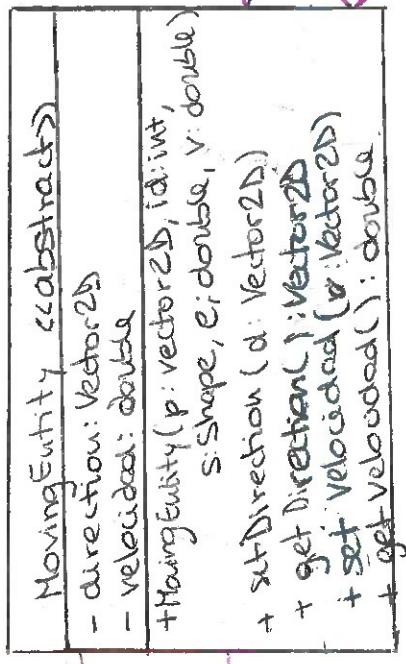 MovingEntity <<abstract>>
- direction: Vector2D
- velocidad: double
+ MovingEntity(p: vector2D, id: int,
s: Shape, e: double, v: double)
+ setDirection (d: Vector2D)
+ getDirection(): Vector2D
+ set velocidad (v: Vector2D)
+ get velocidad(): double